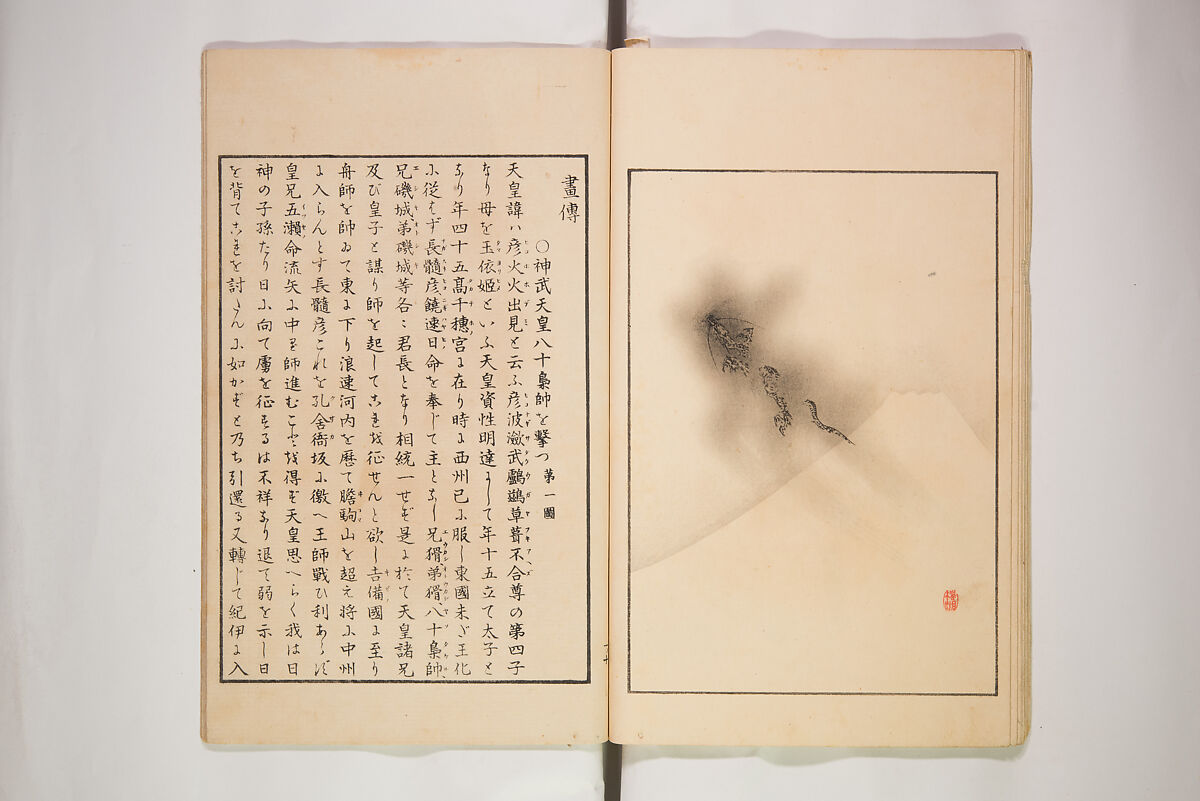 畫傳
○神武天皇八十梟師を擊つ 第一圖
天皇諱ハ彦火火出見と云ふ彦波瀲武鸕鷀草葺不合尊の第四子
なり母を玉依姬といふ天皇資性明達にして年十五立て太子と
なり年四十五高千穗宮に在り時に西州已に服し東國未ダ王化
に從はず長髓彦、饒速日命を奉じて主となし兄猾弟猾、八十梟師
兄磯城、弟磯城等各〻君長となり相統一せず是に於て天皇諸兄
及び皇子と謀り師を起してこれを征せんと欲し吉備國に至り
舟師を帥ゐて東に下り浪速河内を歷て膽駒山を超え將に中州
に入らんとす長髓彦これを孔舍衙坂に徼へ王師戰ひ利あらず
皇兄五瀨命流矢に中り師進むこと得ず天皇思へらく我は日
神の子孫たり日に向て虜を征するは不祥なり退て弱を示し日
を背てこれを討たんに如かずと乃ち引還る又轉じて紀伊に入